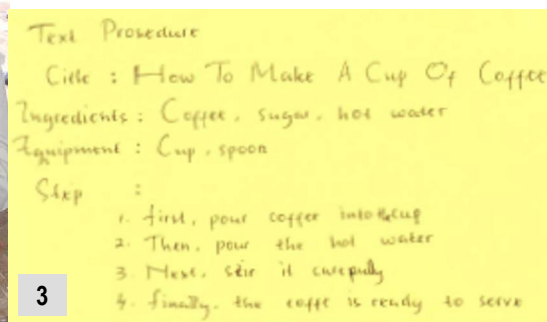 Text Prosedure
Citle : How To Make A Cup Of Coffee
Ingredients : Coffee, sugar, hot water
Equipment : Cup, spoon
Step :
1. first, pour coffee into the cup
2. Then, pour the hot water
3. Next, stir it carepully
4. finally, the coffe is ready to serve
3